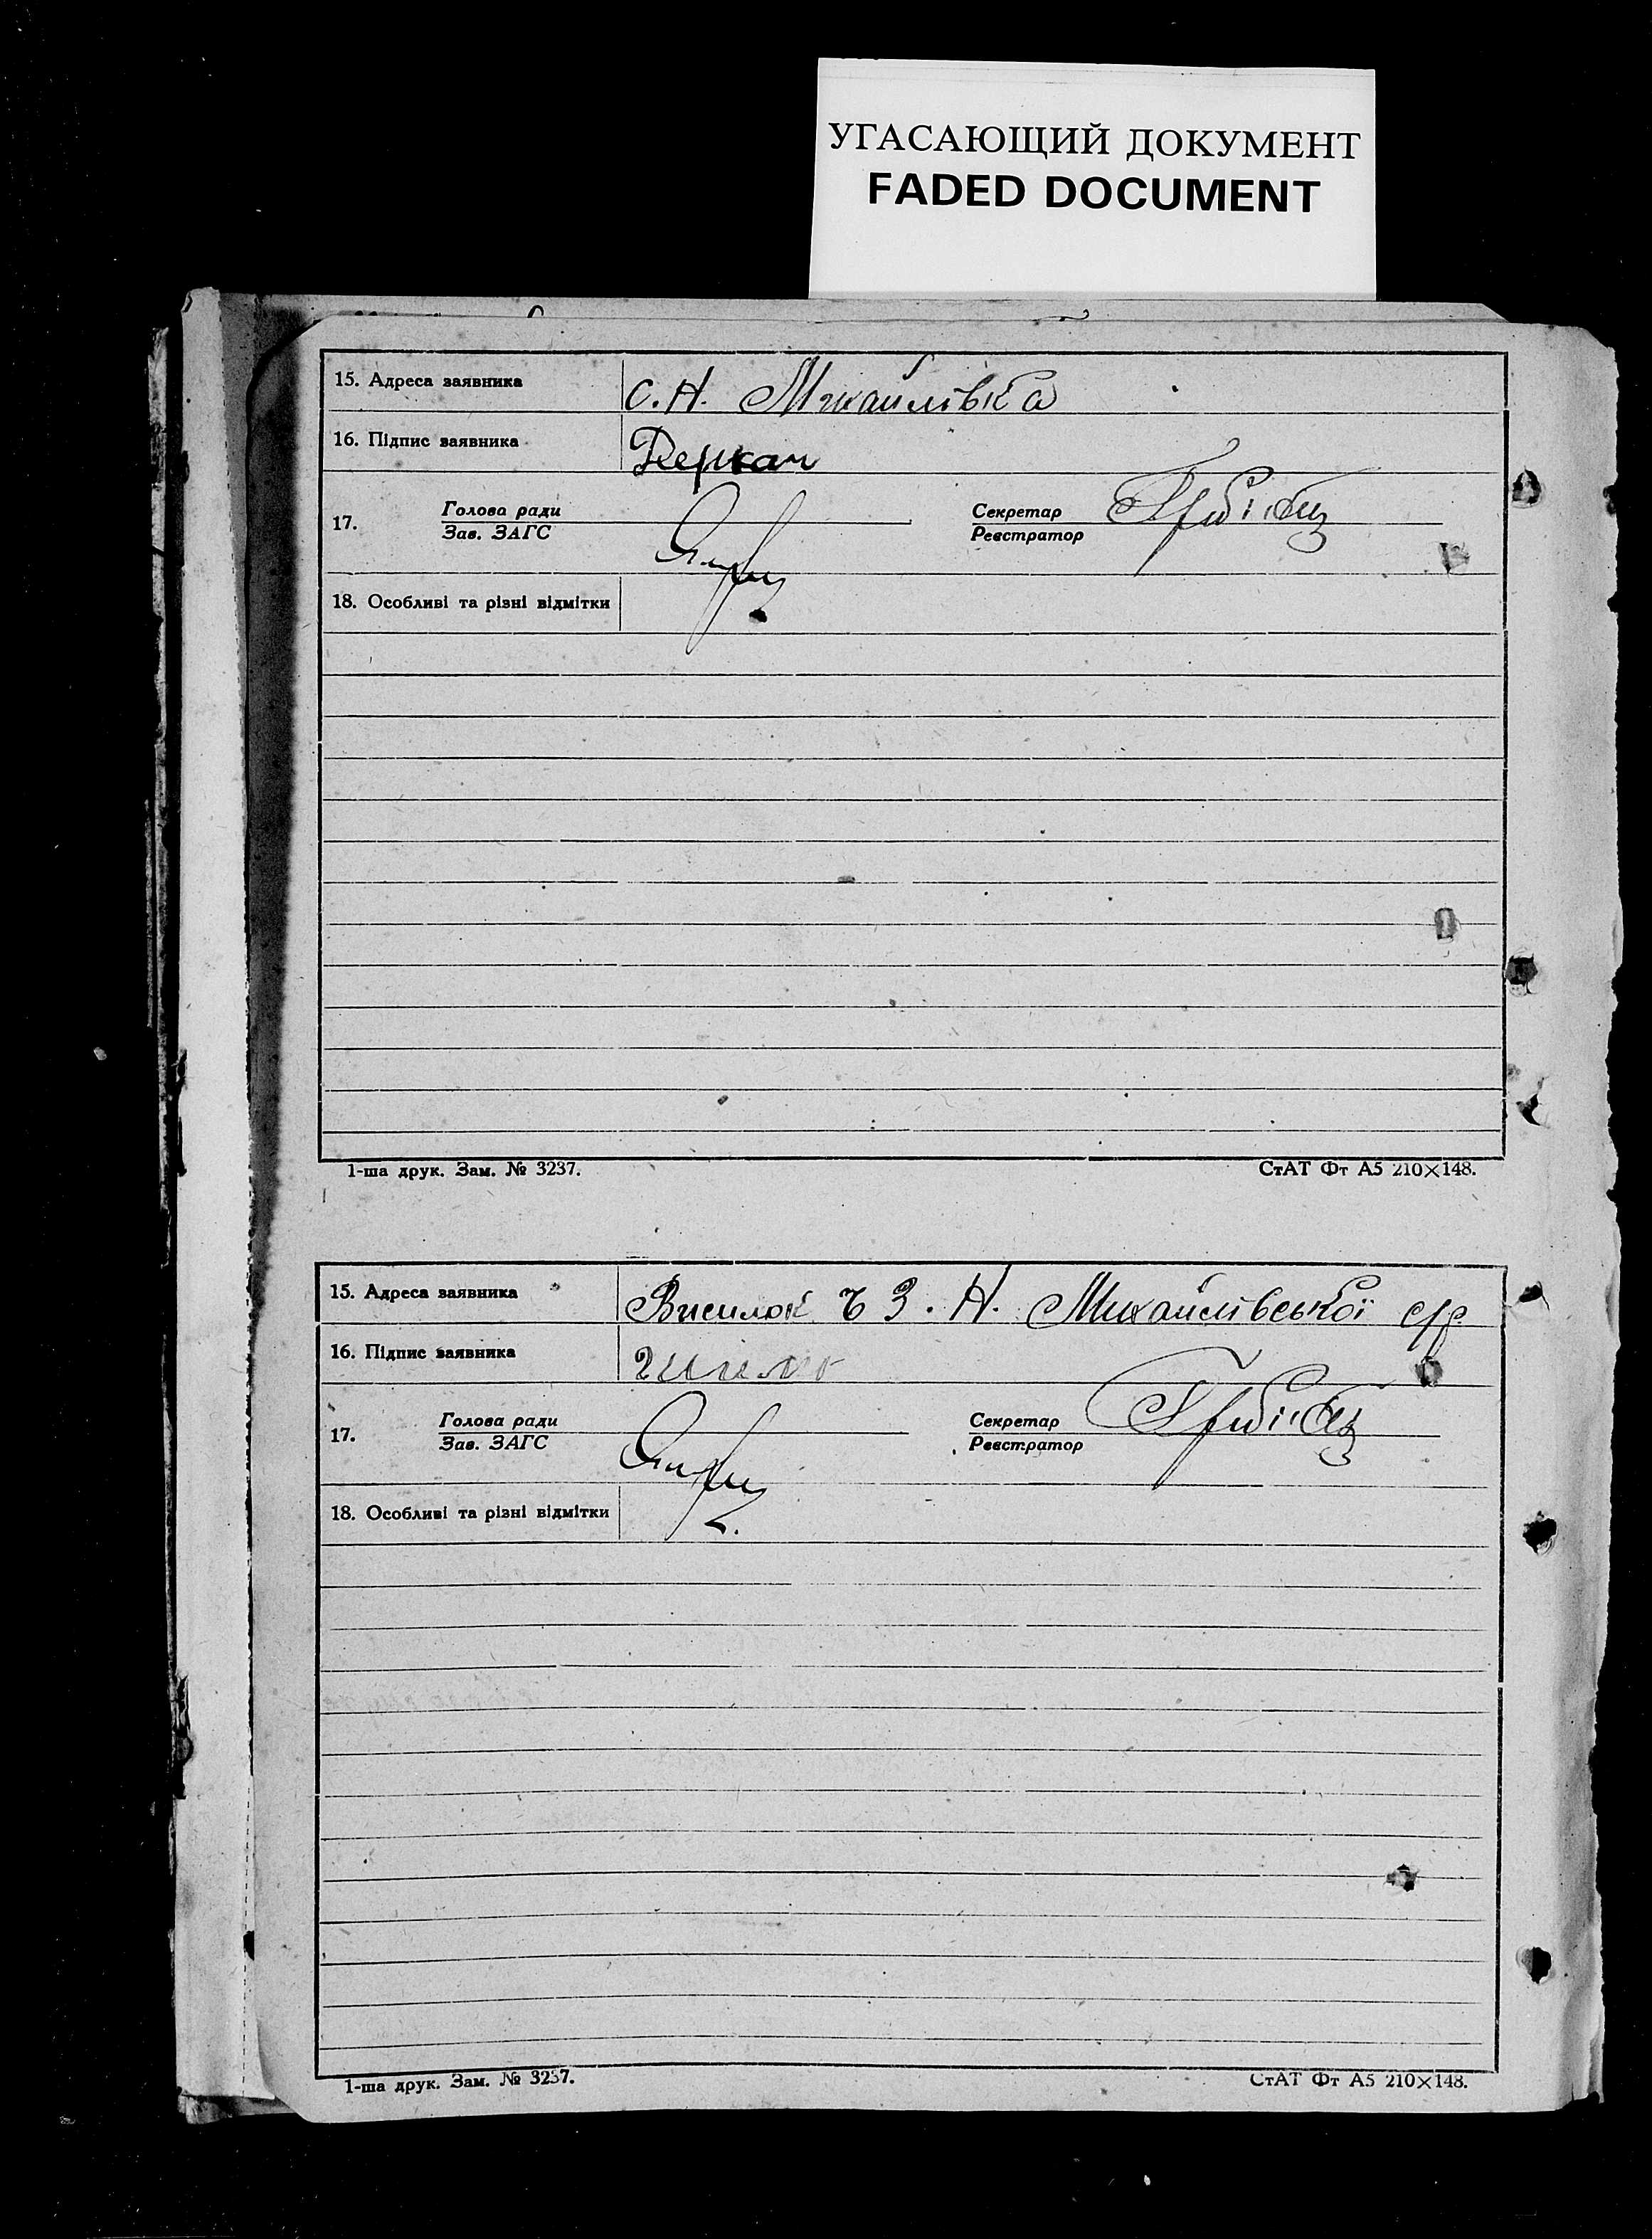 УГАСАЮЩИЙ ДОКУМЕНТ
FADED DOCUMENT
15. Адреса заявника с. Н. Михайлівка
16. Підпис заявника Деркач
17. Голова ради Секретар
Зав. ЗАГС Реєстратор
18. Особливі та різні відмітки
1-ша друк. Зам. № 3237. СтАТ Фт А5 210×148.
15. Адреса заявника Висилок Н. Михайлівської с/р
16. Підпис заявника
17. Голова ради Секретар
Зав. ЗАГС Реєстратор
18. Особливі та різні відмітки
1-ша друк. Зам. № 3237. СтАТ Фт А5 210×148.